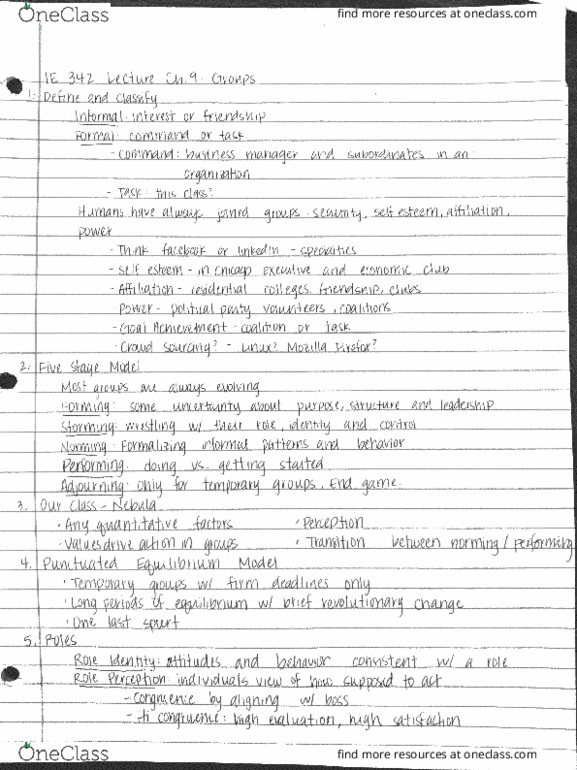 OneClass
find more resources at oneclass.com
IE 342 Lecture Ch.9 Groups
1. Define and Classify
Informal: interest or friendship
Formal: command or task
- command: business manager and subordinates in an
organization
- Task: this class?
Humans have always joined groups - security, self esteem, affiliation,
power
- Think facebook or linkedin - specialties
- Self esteem - in Chicago executive and economic club
- Affiliation - residential colleges, friendship, clubs
Power - political party volunteers, coalitions
- Goal Achievement - coalition or task
- Crowd sourcing? - Linux? Mozilla Firefox?
2. Five Stage Model
Most groups are always evolving
Forming: some uncertainty about purpose, structure and leadership
Storming: wrestling w/ their role, identity and control
Norming: Formalizing informal patterns and behavior
Performing: doing vs. getting started
Adjourning: only for temporary groups. End game.
3. Our Class - Nebula
· Any quantitative factors · Perception
· Values drive action in groups · Transition between norming / performing
4. Punctuated Equilibrium Model
· Temporary groups w/ firm deadlines only
· Long periods of equilibrium w/ brief revolutionary change
· One last spurt
5. Roles
Role Identity: attitudes and behavior consistent w/ a role
Role Perception: individuals view of how supposed to act
- Congruence by aligning w/ boss
- hi congruence: high evaluation, high satisfaction
OneClass
find more resources at oneclass.com